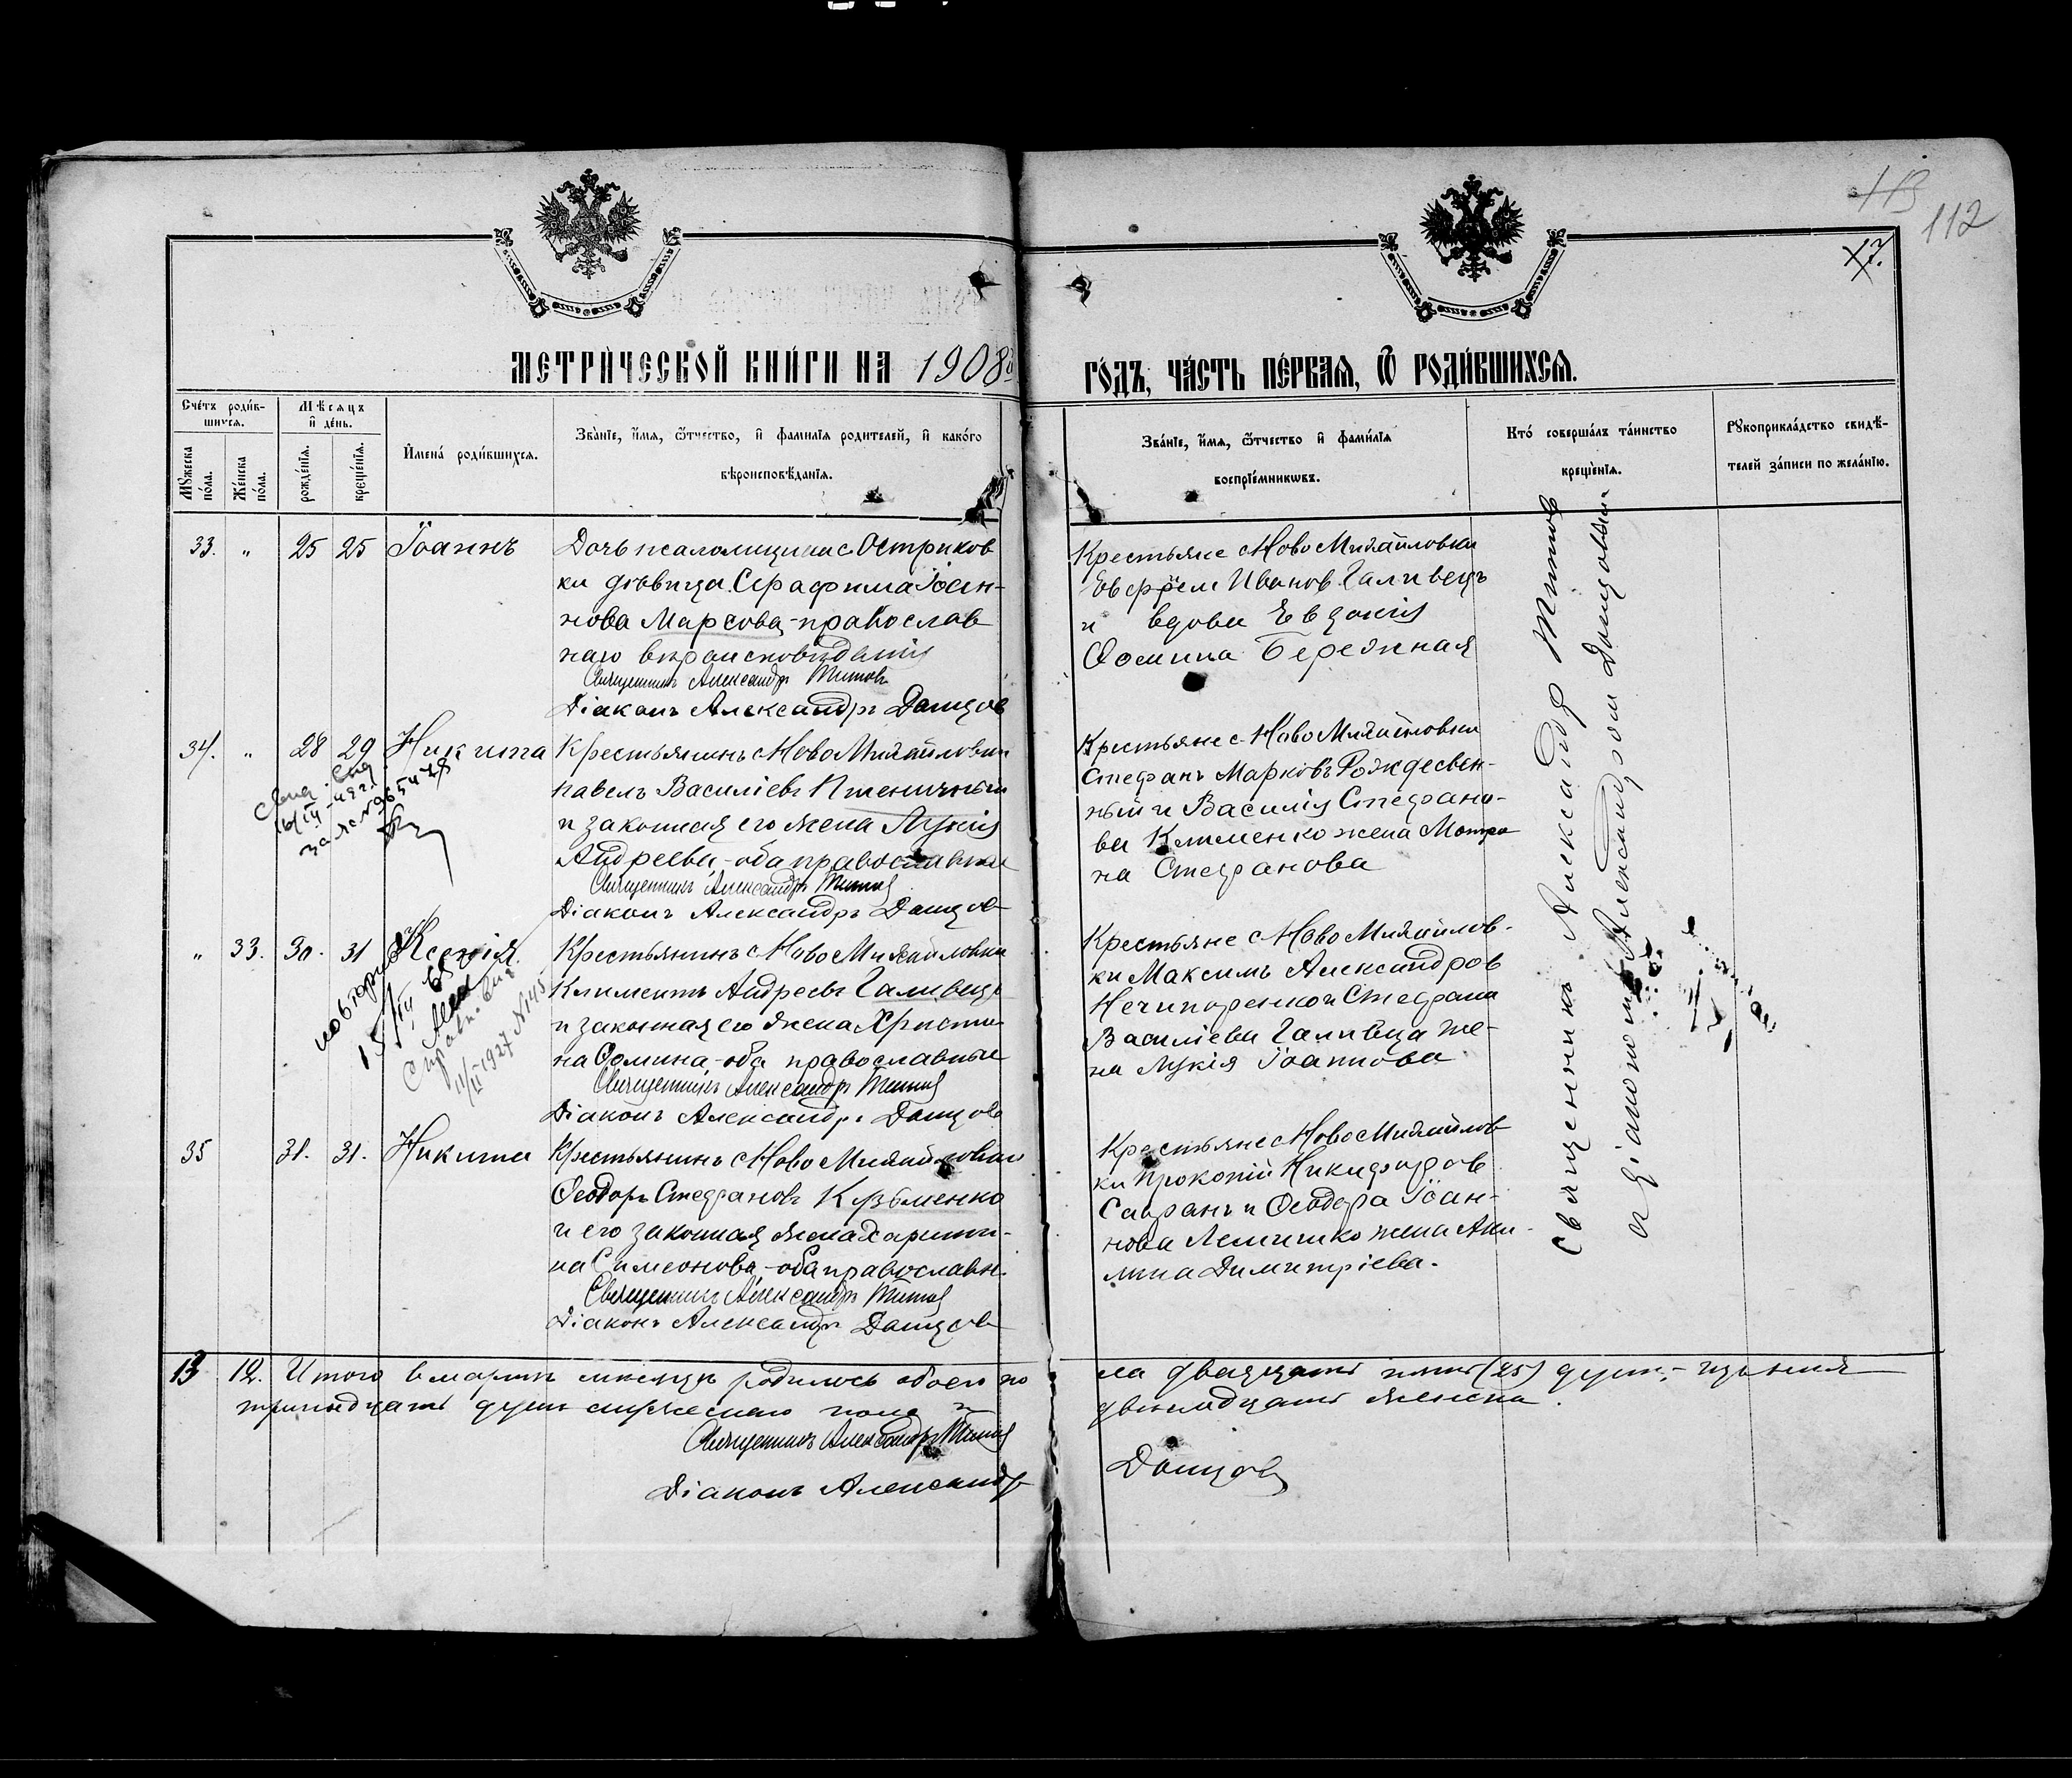 112
МЕТРИЧЕСКОЙ КНИГИ НА 1908й ГОДЪ, ЧАСТЬ ПЕРВАЯ, Ѿ РОДИВШИХСЯ.
Счетъ родив-
шихся.
Мѣсяцъ
и день.
Мужеска
пола.
Женска
пола.
рожденія.
крещенія.
Имена родившихся.
Званіе, имя, ѿтчество, и фамилія родителей, и какого
вѣроисповѣданія.
Званіе, имя, ѿтчество и фамилія
воспріемникωвъ.
Кто совершалъ таинство
крещенія.
Рукоприкладство свидѣ-
телей записи по желанію.
33. „ 25 25 Іоаннъ
Дочь псаломщика с Остриков
ки дѣвица Серафима Іоан-
нова Марсова - православ
наго вѣроисповѣданія
Священникъ Александръ Титовъ
Діаконъ Александръ Донцов
Крестьяне с Ново Михайловки
Иванов Галивецъ
и вдова Евдокія
Фомина Бережная
34. „ 28 29 Никита
Крестьянинъ с Ново Михайловки
Павелъ Василіевъ Пшеничный
и законная его жена Лукія
Андреева, - оба православные
Священникъ Александръ Титов
Діаконъ Александръ Донцов
Крестьяне с Ново Михайловки
Стефанъ Марковъ Рождесвен-
ный и Василія Стефано-
ва Клименко жена Матро
на Стефанова
„ 33. 30. 31 Ксенія.
повторно
15/III
1927 N 145
Крестьянинъ с Ново Михайловки
Климентъ Андреевъ Галивецъ
и законная его жена Христи-
на Фомина, - оба православные
Священникъ Александръ Титов
Діаконъ Александръ Донцовъ
Крестьяне с Ново Михайлов-
ки Максимъ Александров
Нечипоренко и Стефана
Василіева Галивца же-
на Лукія Іоаннова
35 31. 31. Никита
Крестьянинъ с Ново Михайловки
Ѳеодоръ Стефановъ Кузьменко
и его законная жена Харити-
на Симеонова, - оба православн.
Священникъ Александръ Титов
Діаконъ Александръ Донцов
Крестьяне с Ново Михайлов
ки Прокопій Никифоров
Сафранъ и Ѳеодора Іоан-
нова жена Аки-
лина Димитріева.
Священникъ Александр Титов
Діакономъ Александром Донцовым
13 12. Итого в мартѣ мѣсяцѣ родилось обоего по ла двадцать пять (25) душъ, - изъ нихъ
тринадцать душъ мужескаго пола и двѣнадцать женска.
Священникъ Александръ Титов
Діаконъ Александр Донцов